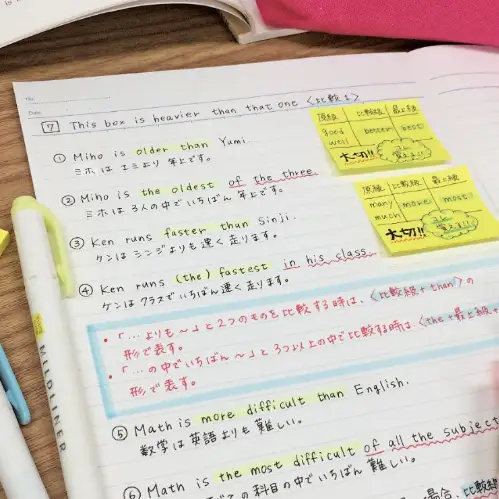 No.
Date
7 This box is heavier than that one <比較1>
① Miho is older than Yumi
ミホはユミより年上です。
② Miho is the oldest of the three.
ミホは3人の中でいちばん年上です。
③ Ken runs faster than Sinji.
ケンはシンジよりも速く走ります。
④ Ken runs (the) fastest in his class.
ケンはクラスでいちばん速く走ります。
・「…よりも～」と2つのものを比較する時は、<比較級+than>の
形で表す。
・「…の中でいちばん～」と3つ以上の中で比較する時は、<the+最上級+
形で表す。
⑤ Math is more difficult than English.
数学は英語よりも難しい。
⑥ Math is the most difficult of all the subject
の科目の中でいちばん難しい。
場合、比較
原級 比較級 最上級
good better best
well
大切!! 覚える!!
原級 比較級 最上級
many more most
much
大切!! 覚える!!
MILDLINER